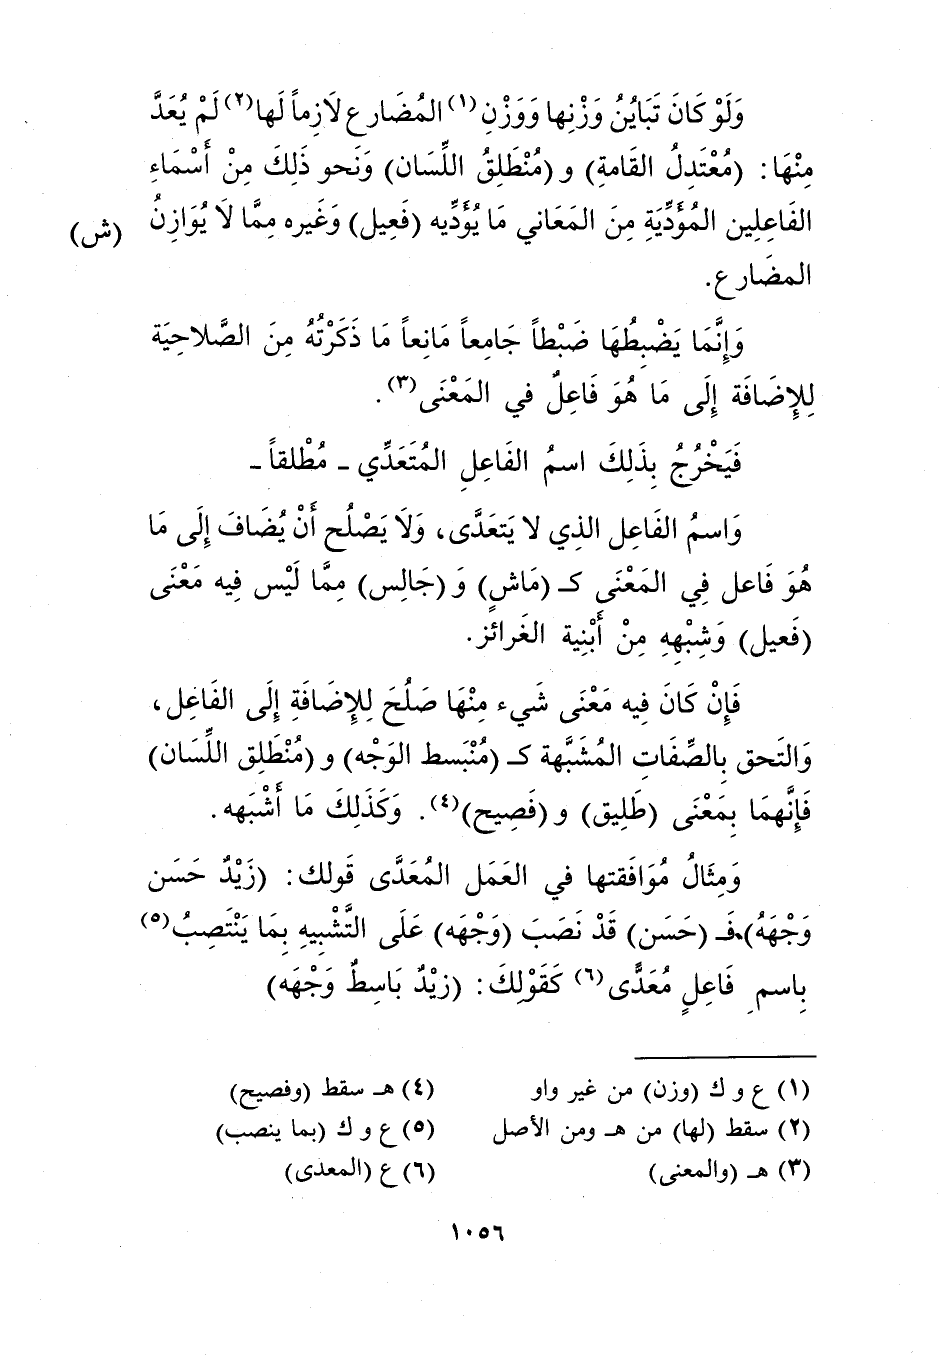 وَلَوْ كَانَ تَبَايُنُ وَزْنِها وَوَزْنِ (١) المُضَارِع لَازِماً لَها (٢) لَمْ يُعَدَّ
مِنْهَا: (مُعْتَدِلُ القَامةِ) و (مُنْطَلِقُ اللِّسَان) وَنَحو ذَلِكَ مِنْ أَسْمَاءِ
الفَاعِلِين المُؤَدِّيَةِ مِنَ المَعَاني مَا يُؤَدِّيه (فَعِيل) وَغَيره مِمَّا لَا يُوَازِنُ (ش)
المضَارِع.
وَإِنَّمَا يَضْبِطُهَا ضَبْطاً جَامِعاً مَانِعاً مَا ذَكَرْتُهُ مِنَ الصَّلاحِيَة
لِلإِضَافَة إِلَى مَا هُوَ فَاعِلٌ في المَعْنَى (٣).
فَيَخْرُجُ بِذَلِكَ اسمُ الفَاعِلِ المُتَعَدِّي ـ مُطْلقاً ـ
وَاسمُ الفَاعِل الذِي لا يَتعَدَّى، وَلَا يَصْلُح أَنْ يُضَافَ إِلَى مَا
هُوَ فَاعل فِي المَعْنَى كـ (مَاشٍ) وَ (جَالِس) مِمَّا لَيْس فِيه مَعْنَى
(فَعيل) وَشِبْهِهِ مِنْ أَبْنِية الغَرائز.
فَإِنْ كَانَ فِيه مَعْنَى شَيء مِنْهَا صَلُحَ لِلإِضَافَةِ إِلَى الفَاعِل،
وَالتَحق بِالصِّفَاتِ المُشَبَّهة كـ (مُنْبَسط الوَجْه) و (مُنْطَلِق اللِّسَان)
فَإِنَّهمَا بِمَعْنَى (طَلِيق) و (فَصِيح) (٤). وَكَذَلِكَ مَا أَشْبَهه.
وَمِثَالُ مُوَافَقتها في العَمَل المُعَدَّى قَولك: (زَيْدٌ حَسَن
وَجْهَهُ)، فَـ (حَسَن) قَدْ نَصَبَ (وَجْهَه) عَلَى التَّشْبِيهِ بِمَا يَنْتَصِبُ (٥)
بِاسمِ فَاعِلٍ مُعَدًّى (٦) كَقَوْلِكَ: (زيْدٌ بَاسِطٌ وَجْهَه)
(١) ع و ك (وزن) من غير واو
(٢) سقط (لها) من هـ ومن الأصل
(٣) هـ (والمعنى)
(٤) هـ سقط (وفصيح)
(٥) ع و ك (بما ينصب)
(٦) ع (المعدى)
١٠٥٦